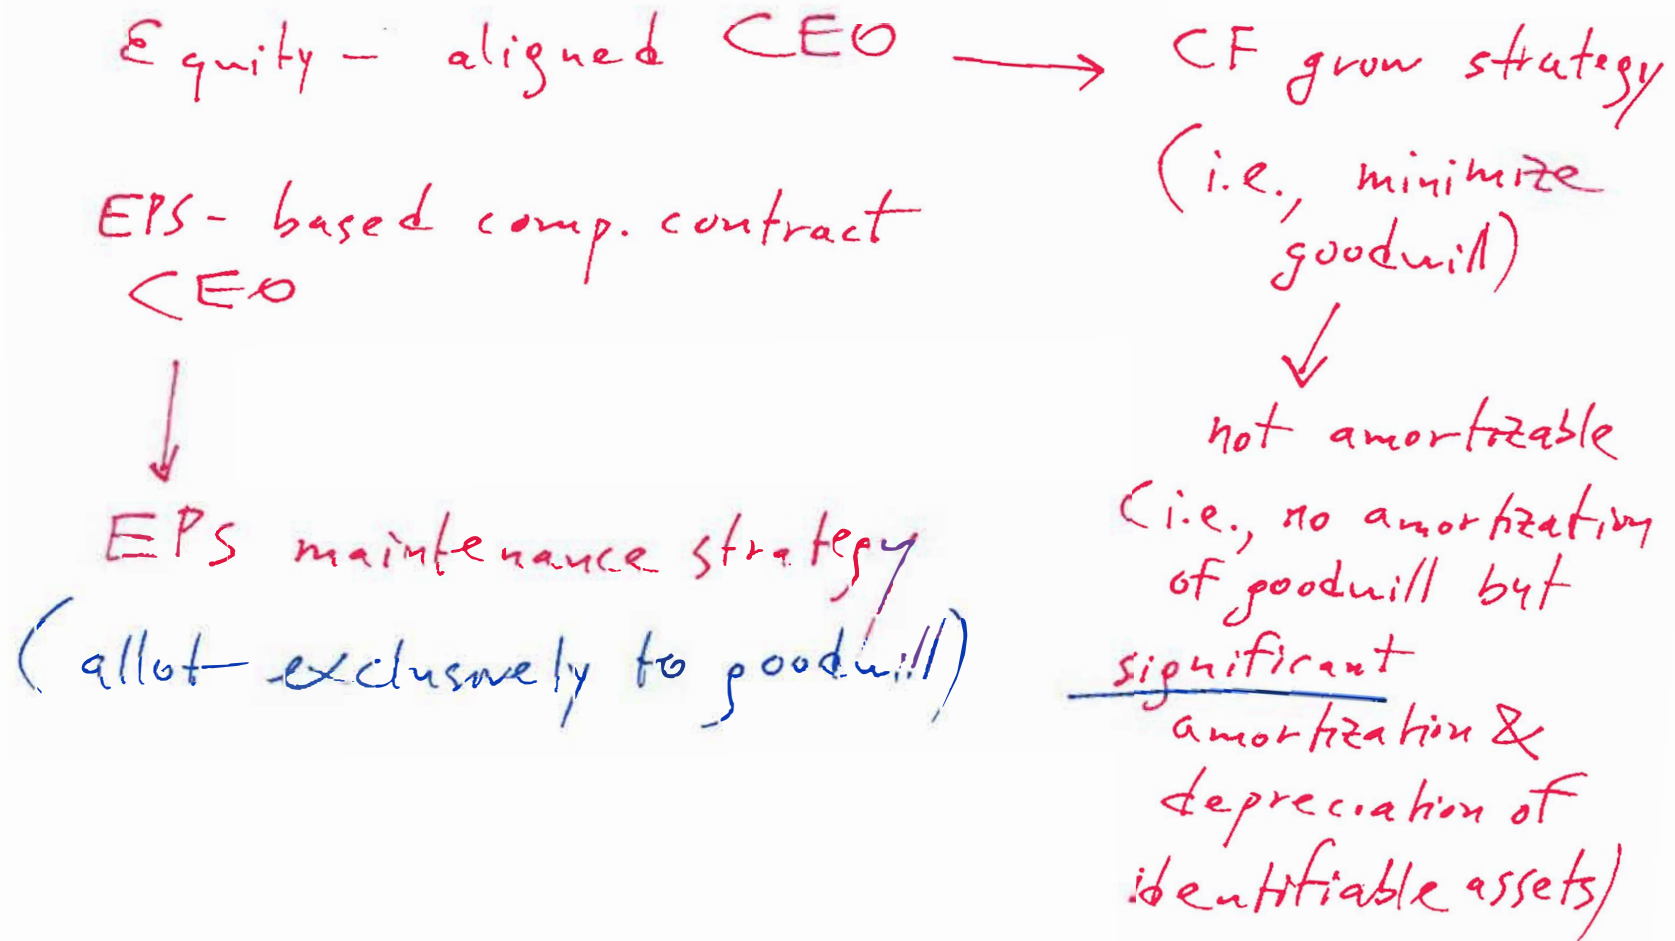 Equity - aligned CEO → CF grow strategy
(i.e., minimize
goodwill)
↓
not amortizable
(i.e., no amortization
of goodwill but
significant
amortization &
depreciation of
identifiable assets)
EPS - based comp. contract
CEO
↓
EPS maintenance strategy
(allot exclusively to goodwill)